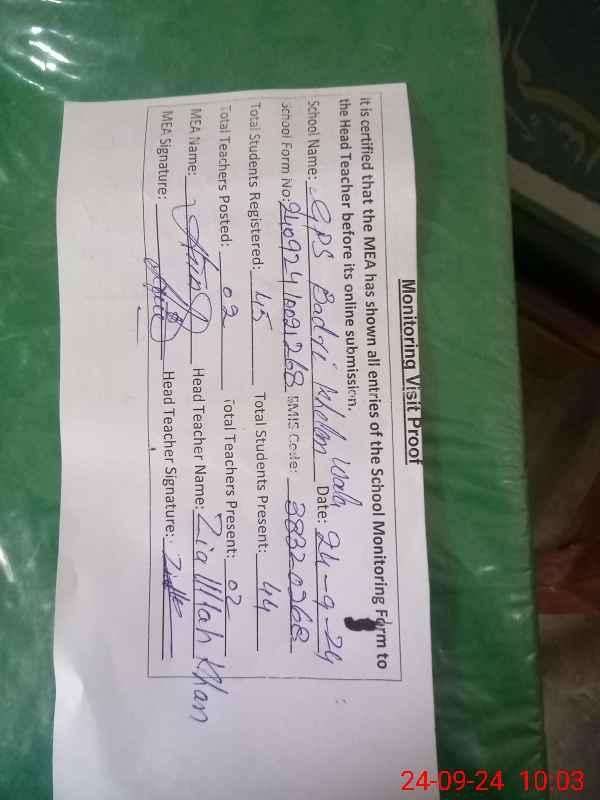 Monitoring Visit Proof
it is certified that the MEA has shown all entries of the School Monitoring Form to
the Head Teacher before its online submission.
School Name: GPS Badri Khelan wala Date: 24-9-24
School Form No: EMIS Code: 38320268
Total Students Registered: 45 Total Students Present: 44
Total Teachers Posted: 02 Total Teachers Present: 02
MEA Name: Head Teacher Name: Zia Ullah Khan
MEA Signature: Head Teacher Signature:
24-09-24 10:03